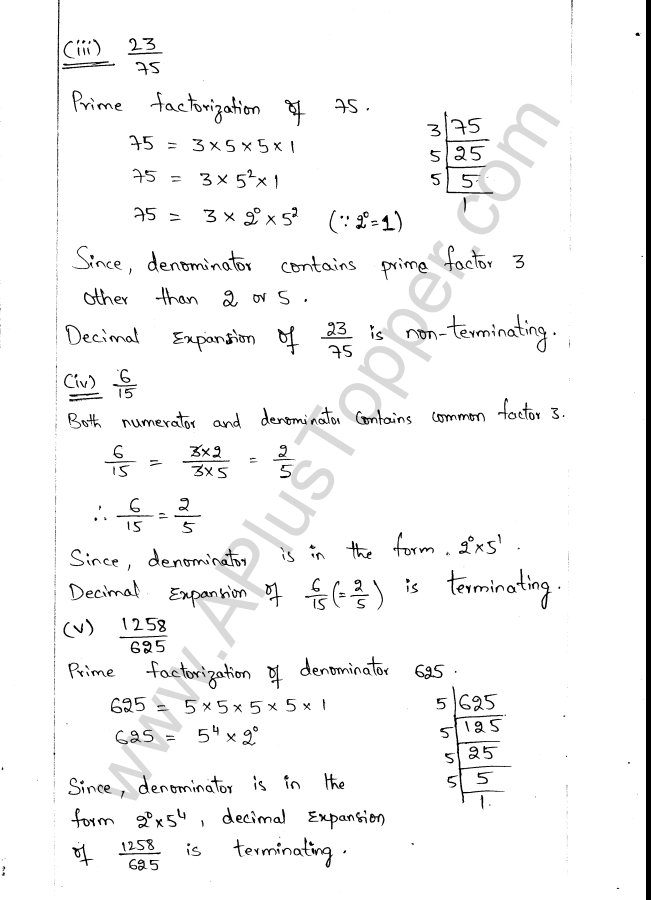 (iii) 23/75
Prime factorization of 75.
75 = 3×5×5×1
75 = 3×5²×1
75 = 3×2⁰×5² (∵2⁰=1)
3|75
5|25
5|5
1
Since, denominator contains prime factor 3
other than 2 or 5.
Decimal Expansion of 23/75 is non-terminating.
(iv) 6/15
Both numerator and denominator contains common factor 3.
6/15 = 3×2/3×5 = 2/5
∴ 6/15 = 2/5
Since, denominator is in the form. 2⁰×5¹.
Decimal Expansion of 6/15 (=2/5) is terminating.
(v) 1258/625
Prime factorization of denominator 625.
625 = 5×5×5×5×1
625 = 5⁴×2⁰
5|625
5|125
5|25
5|5
1.
Since, denominator is in the
form 2⁰×5⁴, decimal Expansion
of 1258/625 is terminating.
www.APlusTopper.com